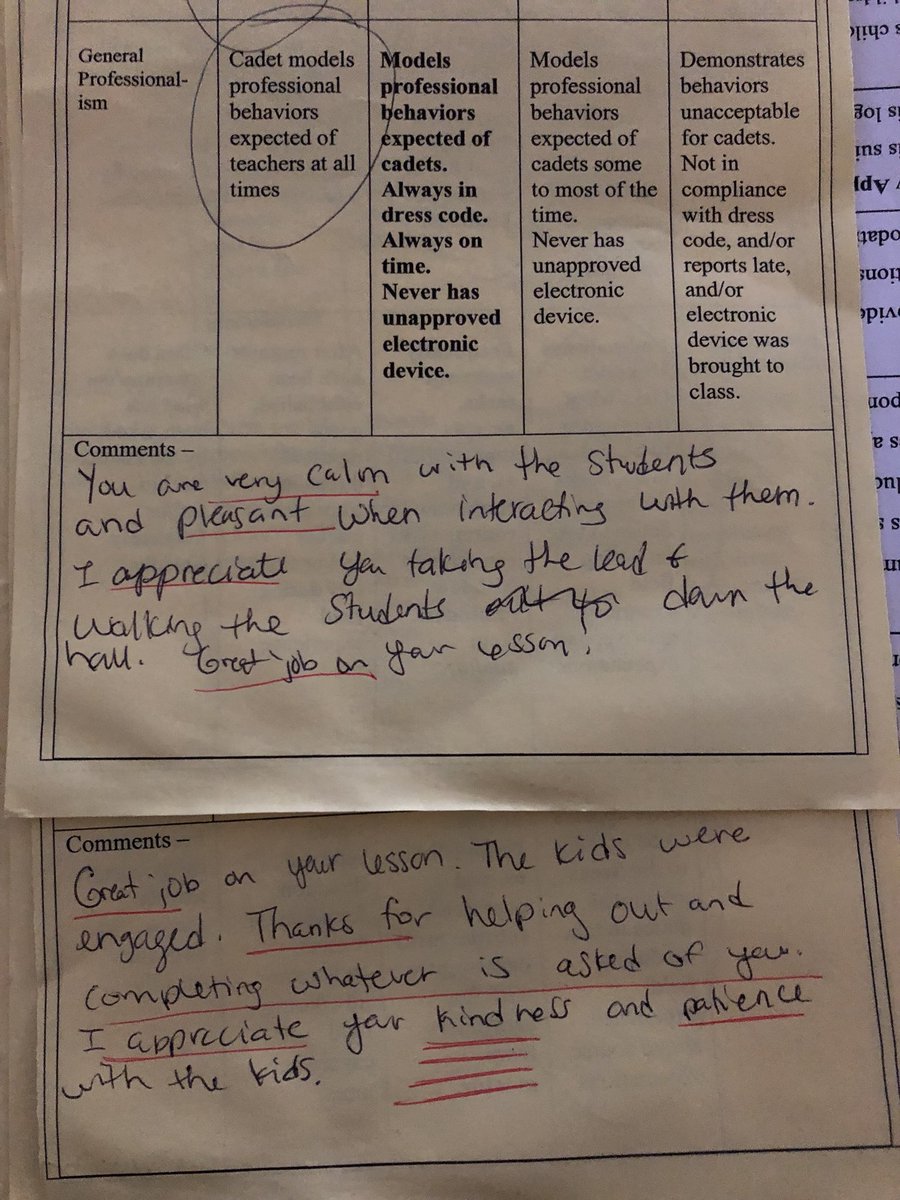 General
Professional-
ism
Cadet models
professional
behaviors
expected of
teachers at all
times
Models
professional
behaviors
expected of
cadets.
Always in
dress code.
Always on
time.
Never has
unapproved
electronic
device.
Models
professional
behaviors
expected of
cadets some
to most of the
time.
Never has
unapproved
electronic
device.
Demonstrates
behaviors
unacceptable
for cadets.
Not in
compliance
with dress
code, and/or
reports late,
and/or
electronic
device was
brought to
class.
Comments –
You are very calm with the students
and pleasant when interacting with them.
I appreciate you taking the lead &
walking the students down the
hall. Great job on your lesson!
Comments –
Great job on your lesson. The kids were
engaged. Thanks for helping out and
completing whatever is asked of you.
I appreciate your kindness and patience
with the kids.